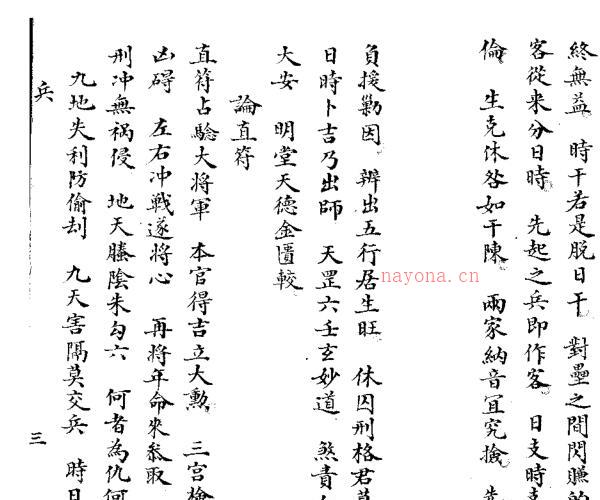 終無益　時干若是脫日干　對壘之間閃賺的
客從來分日時　先起之兵即作客　日支時支
倫　生克休咎如干陳　兩家納音宜究撿　先
負援勦因　辨出五行居生旺　休囚刑格君莫
日時卜吉乃出師　天罡六壬玄妙道　煞貴人
大安　明堂天德金匱較
論直符
直符占驗大將軍　本官得吉立大勲　三宮檢
凶碍　左右冲戰遂將心　再將年命來叅取
刑冲無禍侵　地天螣陰朱勾六　何者為仇何
九地失利防偷刦　九天害隔莫交兵　時日
兵
三
nayona.cn